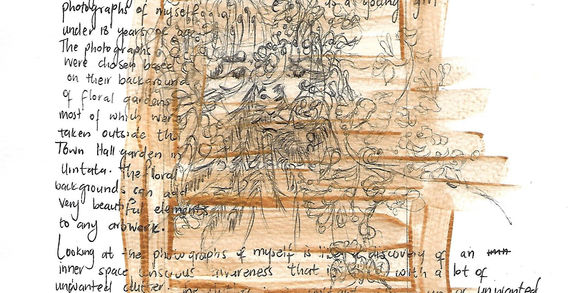 photographs of myself as a young girl
under 18 years of age.
The photographs
were chosen based
on their background
of floral gardens
most of which were
taken outside the
Town Hall garden in
Umtata. The floral
backgrounds can add
very beautiful elements
to any artwork.
Looking at the photographs of myself is like a discovery of an
inner space conscious awareness that is with a lot of
unwanted clutter. or unwanted